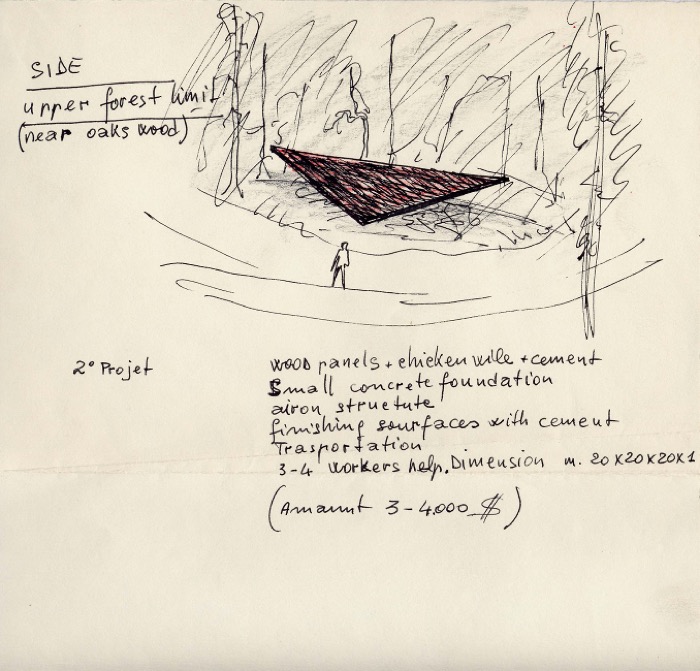 SIDE
upper forest limit
(near oaks wood)
2° Projet
wood panels + chicken wille + cement
Small concrete foundation
airon structute
finishing sourfaces with cement
Trasportation
3-4 workers help. Dimension m. 20x20x20x1
(Amaunt 3-4.000 $)